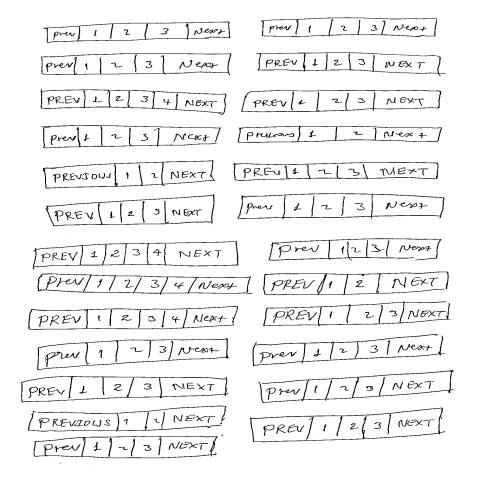 prev 1 2 3 Next
prev 1 2 3 Next
PREV 1 2 3 4 NEXT
prev 1 2 3 Next
PREVIOUS 1 2 NEXT
PREV 1 2 3 NEXT
PREV 1 2 3 4 NEXT
Prev 1 2 3 4 Next
PREV 1 2 3 4 Next
prev 1 2 3 Next
PREV 1 2 3 NEXT
PREVIOUS 1 2 NEXT
Prev 1 2 3 NEXT
prev 1 2 3 Next
PREV 1 2 3 NEXT
PREV 1 2 3 NEXT
Previous 1 2 Next
PREV 1 2 3 NEXT
Prev 1 2 3 Next
Prev 1 2 3 Next
PREV 1 2 NEXT
PREV 1 2 3 NEXT
Prev 1 2 3 Next
Prev 1 2 3 NEXT
PREV 1 2 3 NEXT